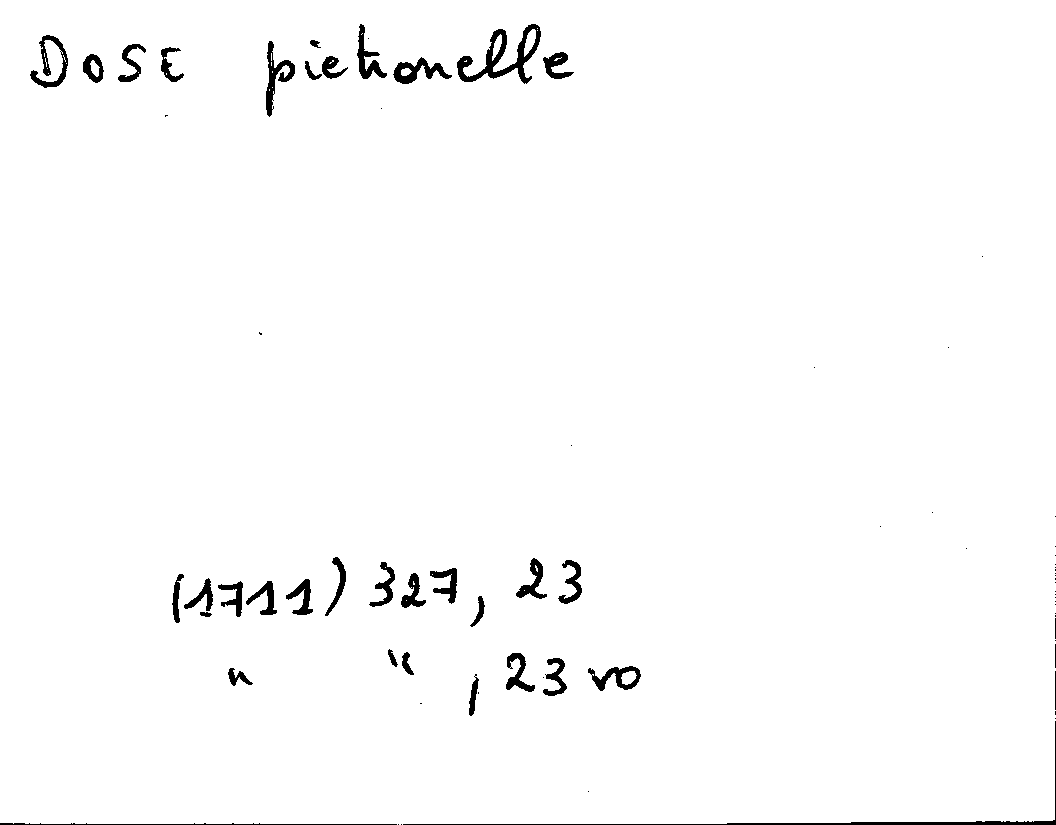 DOSE pietronelle
(1711) 327, 23
" " , 23 vo